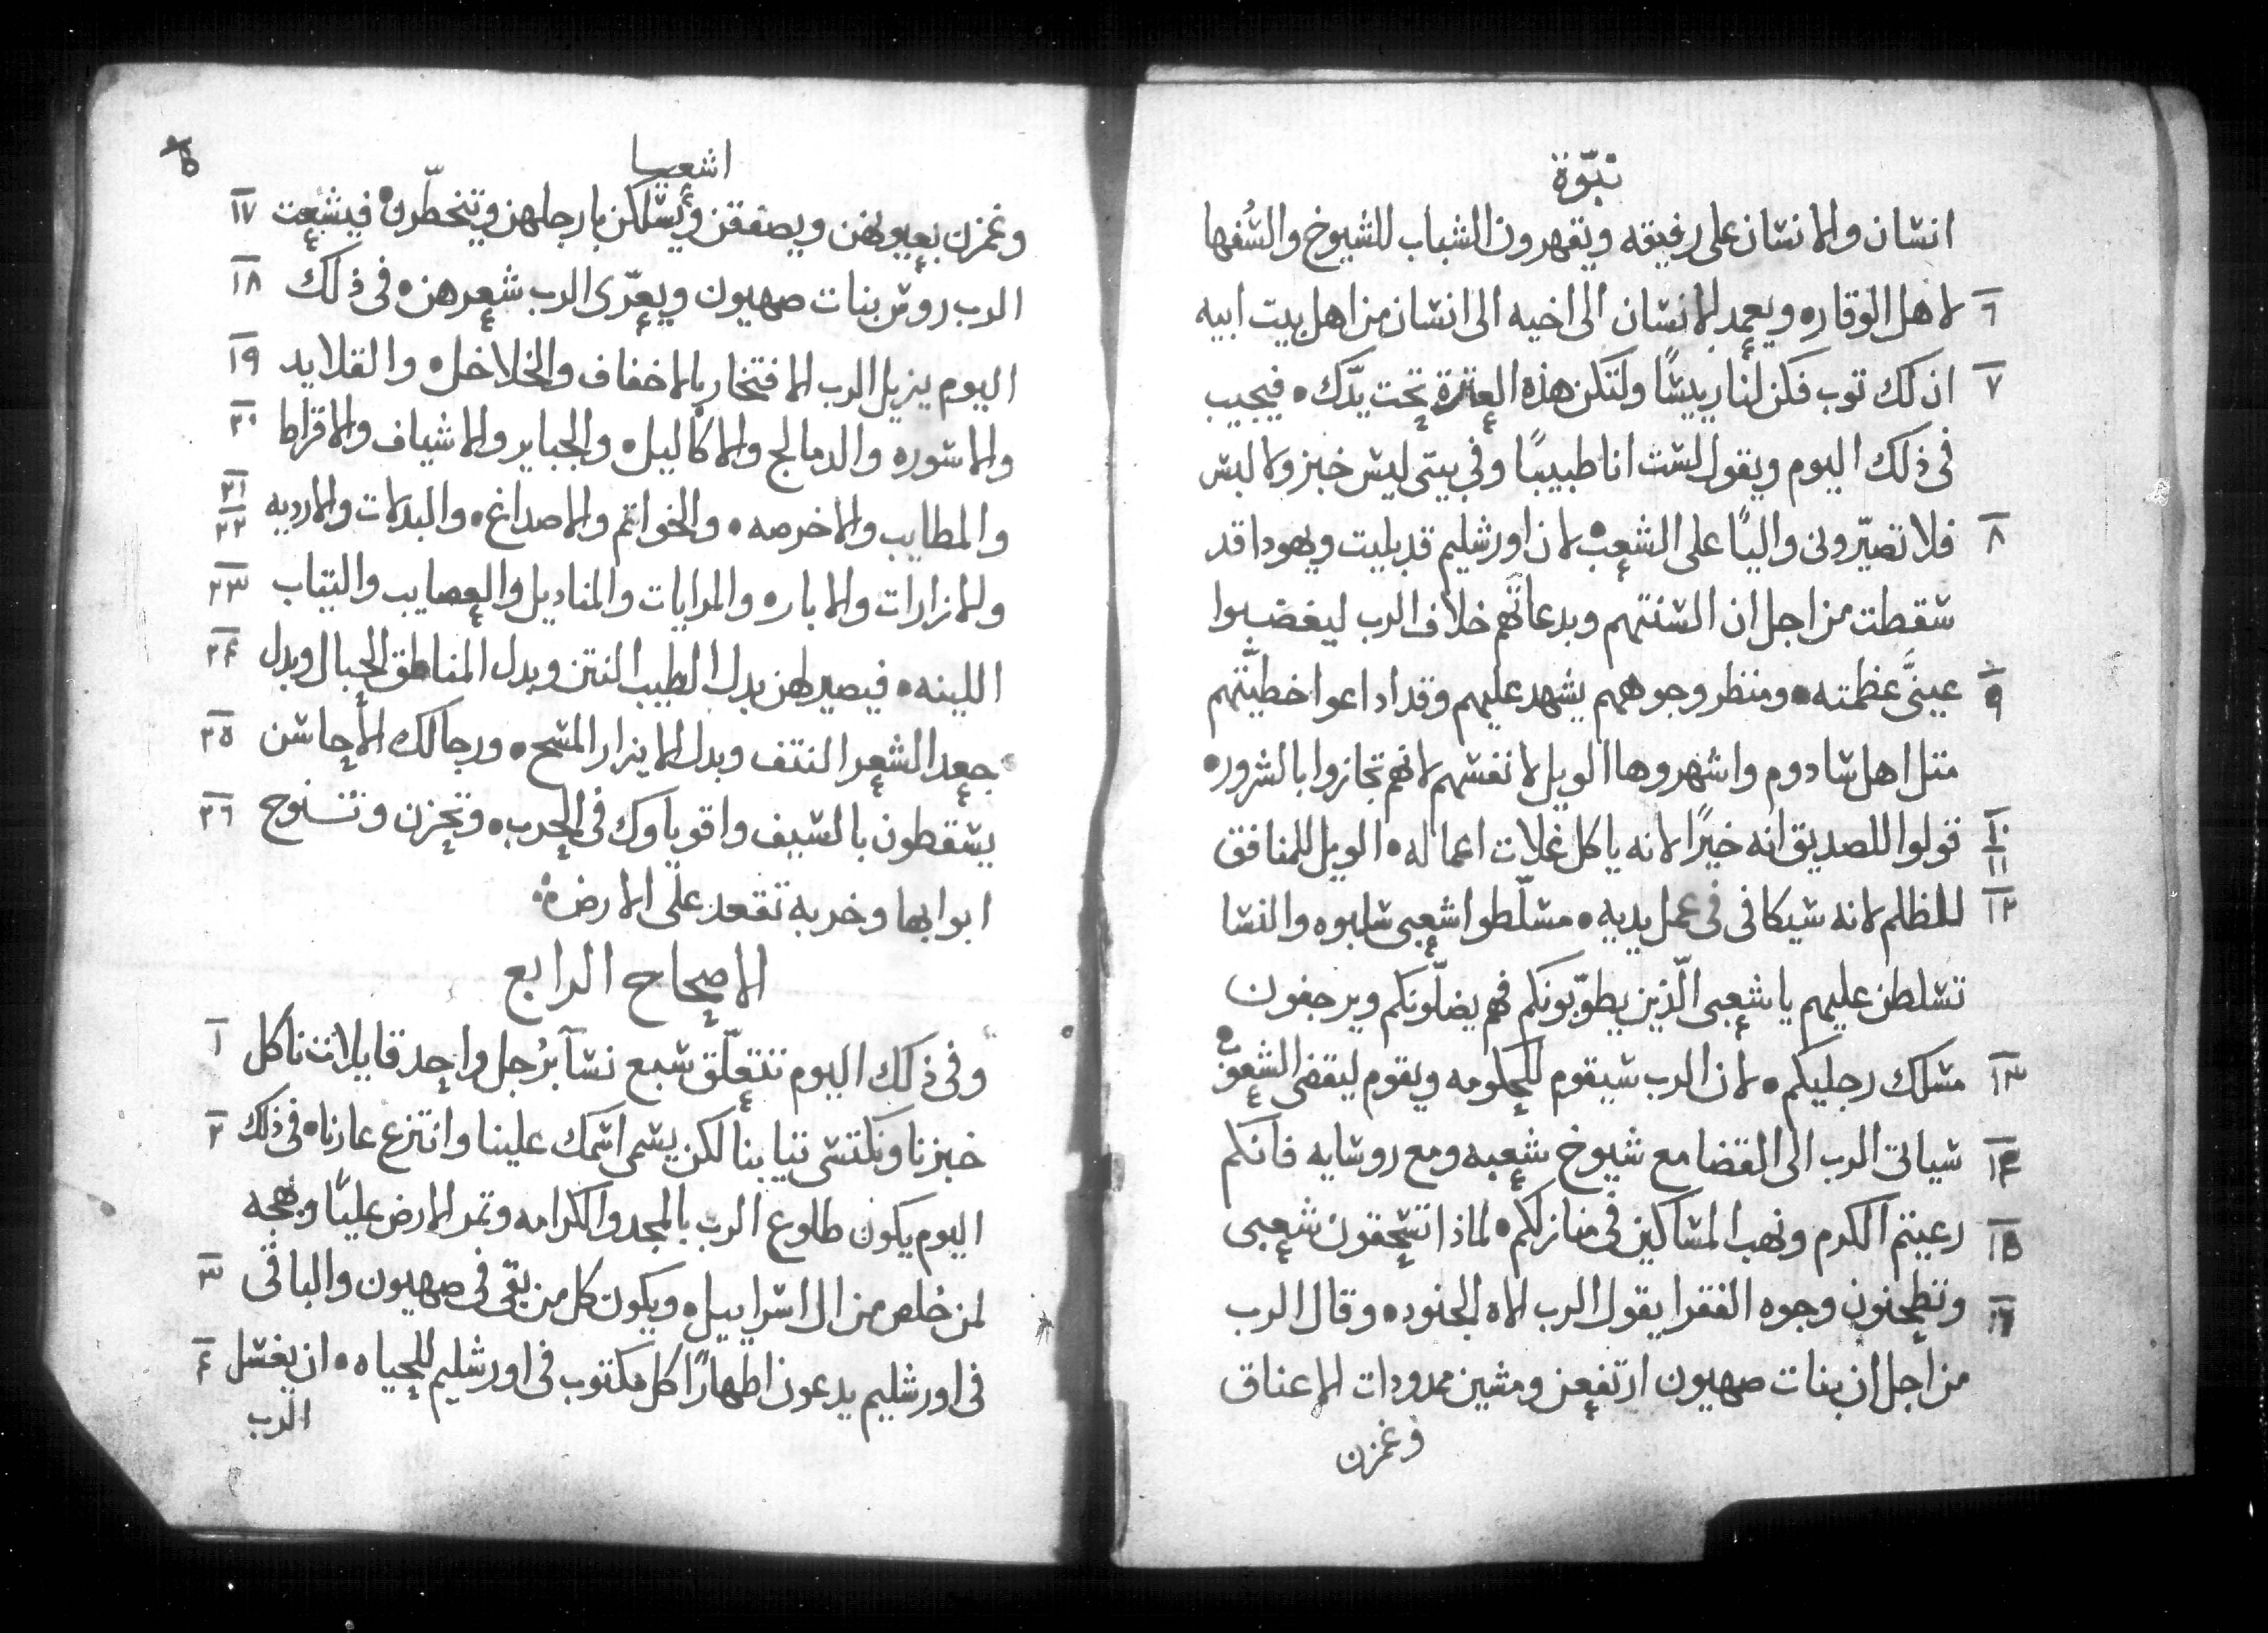 نبوّة
انسان والانسان على رفيقه ويقهرون الشباب للشيوخ والسُفها
٦ لاهل الوقاره ويعمد الانسان الى اخيه الى انسان من اهل بيت ابيه
٧ ان لك توب فكن لنا ريسًا ولتكن هذه العترة تحت يدّك ۰ فيجيب
فى ذلك اليوم ويقول لست انا طبيبًا وفي بيتى ليس خبز ولا لبس
٨ فلا تصيّرونى واليًا على الشعب ۰ لان اورشليم قد بليت ويهودا قد
سقطت من اجل ان السنتهم وبدعاتهم خلاف الرب ليغضبوا
٩ عينَّى عظمته ۰ ومنظر وجوههم يشهد عليهم وقد اداعوا خطيّتهم
متل اهل سادوم واشهروها الويل لانفسهم لانهم تجازوا بالشرور ۰
١٠ قولوا للصديق انه خيرًا لانه ياكل غلات اعماله ۰ الويل للمنافق
١١
١٢ للظلم لانه سيكافى فى عمل يديه ۰ مسلّطوا شعبى سلبوه والنسا
تسلطن عليهم يا شعبى الّذين يطوّبونكم فهم يضلّونكم ويرجفون
١٣ مسلك رجليكم ۰ لان الرب سيقوم للحكومه ويقوم ليقضى الشعوب ۰
١٤ سياتى الرب الى القضا مع شيوخ شعبه ومع روسايه فانكم
١٥ رعيتم الكرم ونهب المساكين فى منازلكم ۰ لماذا تسحقون شعبى
١٦ وتطحنون وجوه الفقرا يقول الرب الاه الجنود ۰ وقال الرب
من اجل ان بنات صهيون ارتفعن ومشين ممدودات الاعناق
وغمزن
اشعيا
٥
وغمزن بعيونهن ويصفقن ويسلكن بارجلهن وتتخطّرن ۰ فيشعت ١٧
الرب روس بنات صهيون ويعرّى الرب شعرهن ۰ فى ذلك ١٨
اليوم يزيل الرب الافتخار بالاخفاف والخلاخل ۰ والقلايد ١٩
والاسوره والدمالج والاكاليل ۰ والجباير والاشياف والاقراط ٢٠
والمطايب والاخرصه ۰ والخواتم والاصداغ ۰ والبدلات والارديه ٢١ ٢٢
والازارات والاباره ۰ والمرايات والمناديل والعصايب والتياب ٢٣
اللينه ۰ فيصير لهن بدل الطيب النتن وبدل المناطق الحبال وبدل ٢٤
جعد الشعر النتف وبدل الايزار المسح ۰ ورجالك الاحاسن ٢٥
يسقطون بالسيف واقوياوك فى الحرب ۰ وتحزن وتنوح ٢٦
ابوابها وخربه تقعد على الارض ۰
الاصحاح الرابع
وفى ذلك اليوم تتعلّق سبع نسآ برُجل واحد قايلات ناكل ١
خبزنا ونكتسى تيابنا لكن يسمى اسمك علينا وانتزع عارنا ۰ فى ذلك ٢
اليوم يكون طلوع الرب بالمجد والكرامه وتمر الارض عليًا وبهجه
لمن خلص من ال اسراييل ۰ ويكون كل من بقى فى صهيون والباقى ٣
فى اورشليم يدعون اطهارًا كل مكتوب فى اورشليم للحياه ۰ ان يغسل ٤
الرب